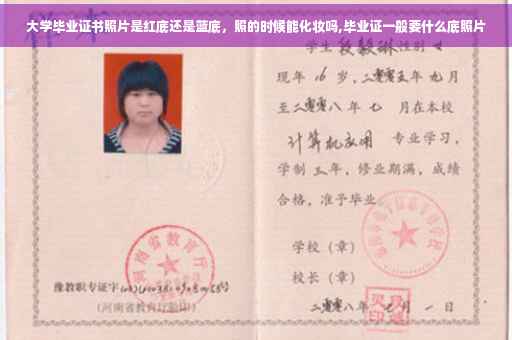 大学毕业证书照片是红底还是蓝底，照的时候能化妆吗,毕业证一般要什么底照片
学生段毅琳性别女
现年16岁，二零零五年九月
至二零零八年七 月在本校
计算机应用 专业学习，
学制三年，修业期满，成绩
合格，准予毕业
学校（章）
校长（章）
二零零八年七月一日
河南省教育厅
豫教职专证字
（河南省教育厅验印）